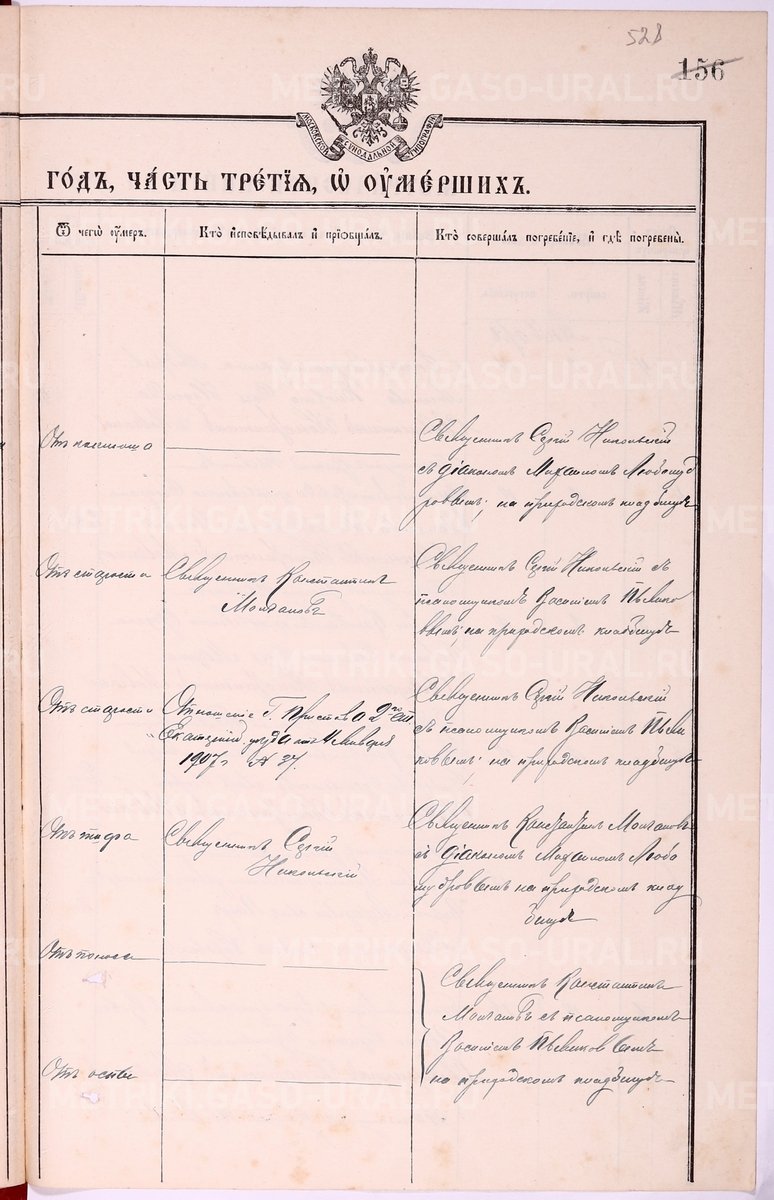 528
156
МОСКОВСКОЙ СѴНОДАЛЬНОЙ ТИПОГРАФІИ
ГОДЪ, ЧАСТЬ ТРЕТІЯ, Ѡ ОУМЕРШИХЪ.
Ѿ чегѡ оумеръ.
Кто исповѣдывалъ и пріобщалъ.
Кто совершалъ погребеніе, и гдѣ погребены.
Отъ
Священникъ Сергій Никольскій
съ діакономъ Михаиломъ Любомуд
ровымъ; на приходскомъ кладбищѣ
Отъ старости
Священникъ Константинъ
Молчановъ
Священникъ Сергій Никольскій съ
псаломщикомъ Василіемъ Пьянко
вымъ; на приходскомъ кладбищѣ
Отъ старости
Отношеніе Г. Пристава 2го ст.
Екатерин. уѣзда отъ Января
1907 г. № 37.
Священникъ Сергій Никольскій
съ псаломщикомъ Василіемъ Пьян
ковымъ; на приходскомъ кладбищѣ
Отъ тифа
Священникъ Сергій
Никольскій
Священникъ Константинъ Молчановъ
съ діакономъ Михаиломъ Любо
мудровымъ на приходскомъ клад
бищѣ
Отъ поноса
Священникъ Константинъ
Молчановъ съ псаломщикомъ
Василіемъ Пьянковымъ
на приходскомъ кладбищѣ
Отъ оспы
METRIKI.GASO-URAL.RU